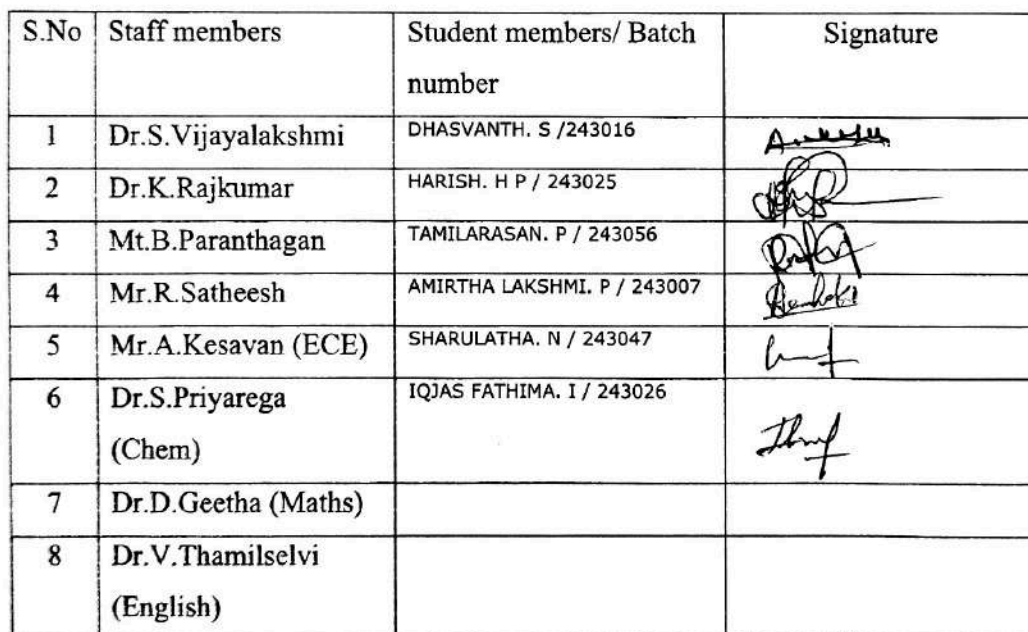 S.No Staff members Student members/ Batch number Signature
1 Dr.S.Vijayalakshmi DHASVANTH. S /243016
2 Dr.K.Rajkumar HARISH. H P / 243025
3 Mt.B.Paranthagan TAMILARASAN. P / 243056
4 Mr.R.Satheesh AMIRTHA LAKSHMI. P / 243007
5 Mr.A.Kesavan (ECE) SHARULATHA. N / 243047
6 Dr.S.Priyarega (Chem) IQJAS FATHIMA. I / 243026
7 Dr.D.Geetha (Maths)
8 Dr.V.Thamilselvi (English)